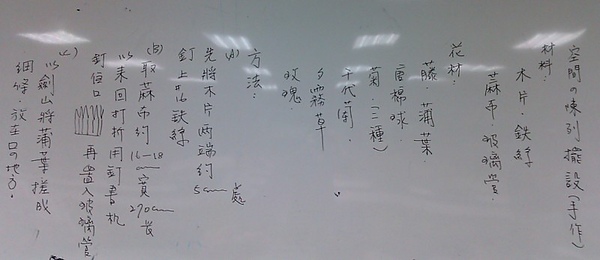 空間の陳列擺設(手作)
材料:
木片、鉄絲
蔴布、玻璃管
花材:
藤、蒲葉、
官棉球、
菊(三種)
千代蘭、
夕霧草
玫瑰、
方法:
(A)
先將木片兩端約5cm處
釘上#16鉄絲
(B)取蔴布約16—18cm寬270cm長
以来回打折用釘書机
釘住口 再置入玻璃管
(C)
以劍山將蒲葉搓成
細條、放在口の地方.